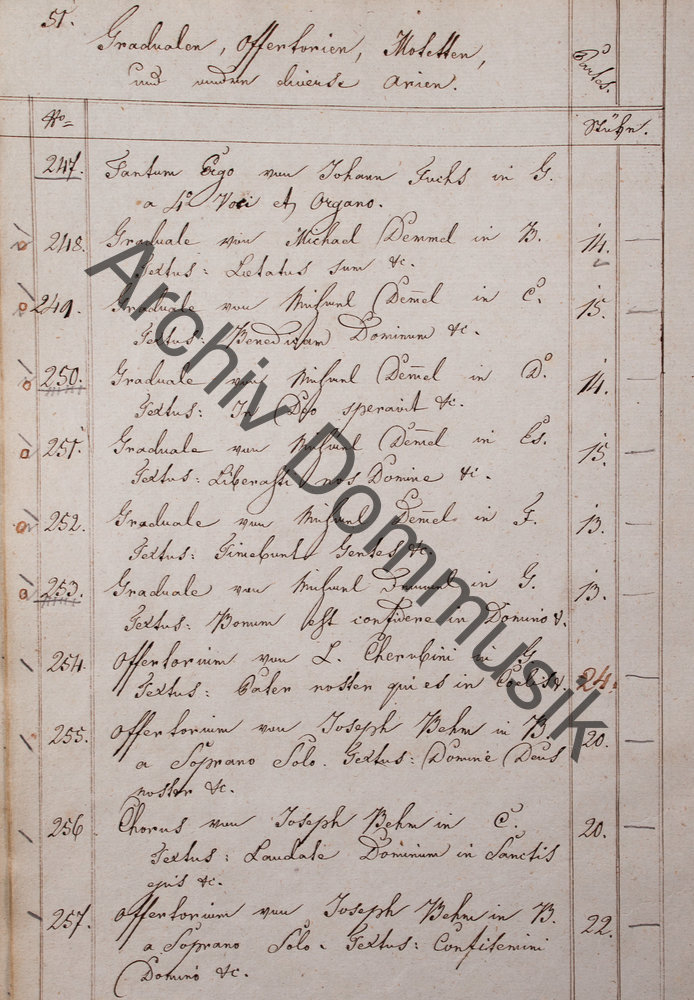 51.
Gradualen, Offertorien, Motetten,
und andere diverse Arien.
Partes.
No=
Stühr.
247. Tantum Ergo von Johann Fuchs in G.
a 4o Voci et Organo.
248. Graduale von Michael Demmel in B. 14.
Textus: Laetatus sum &c.
249. Graduale von Michael Dem̄el in C. 15.
Textus: Benedicam Dominum &c.
250. Graduale von Michael Dem̄el in D. 14.
Textus: In Deo speravit &c.
251. Graduale von Michael Dem̄el in Es. 15.
Textus: Liberasti nos Domine &c.
252. Graduale von Michael Dem̄el in F. 13.
Textus: Timebunt Gentes &c.
253. Graduale von Michael Demmel in G. 13.
Textus: Bonum est confidere in Domino &.
254. Offertorium von L. Cherubini in G
Textus: Pater noster qui es in Coelis &. 24.
255. Offertorium von Joseph Behm in B. 20.
a Soprano Solo. Textus: Domine Deus
noster &c.
256 Chorus von Joseph Behm in C. 20.
Textus: Laudate Dominum in Sanctis
ejus &c.
257. Offertorium von Joseph Behm in B. 22.
a Soprano Solo. Textus: Confitemini
Domino &c.
Archiv Dommusik